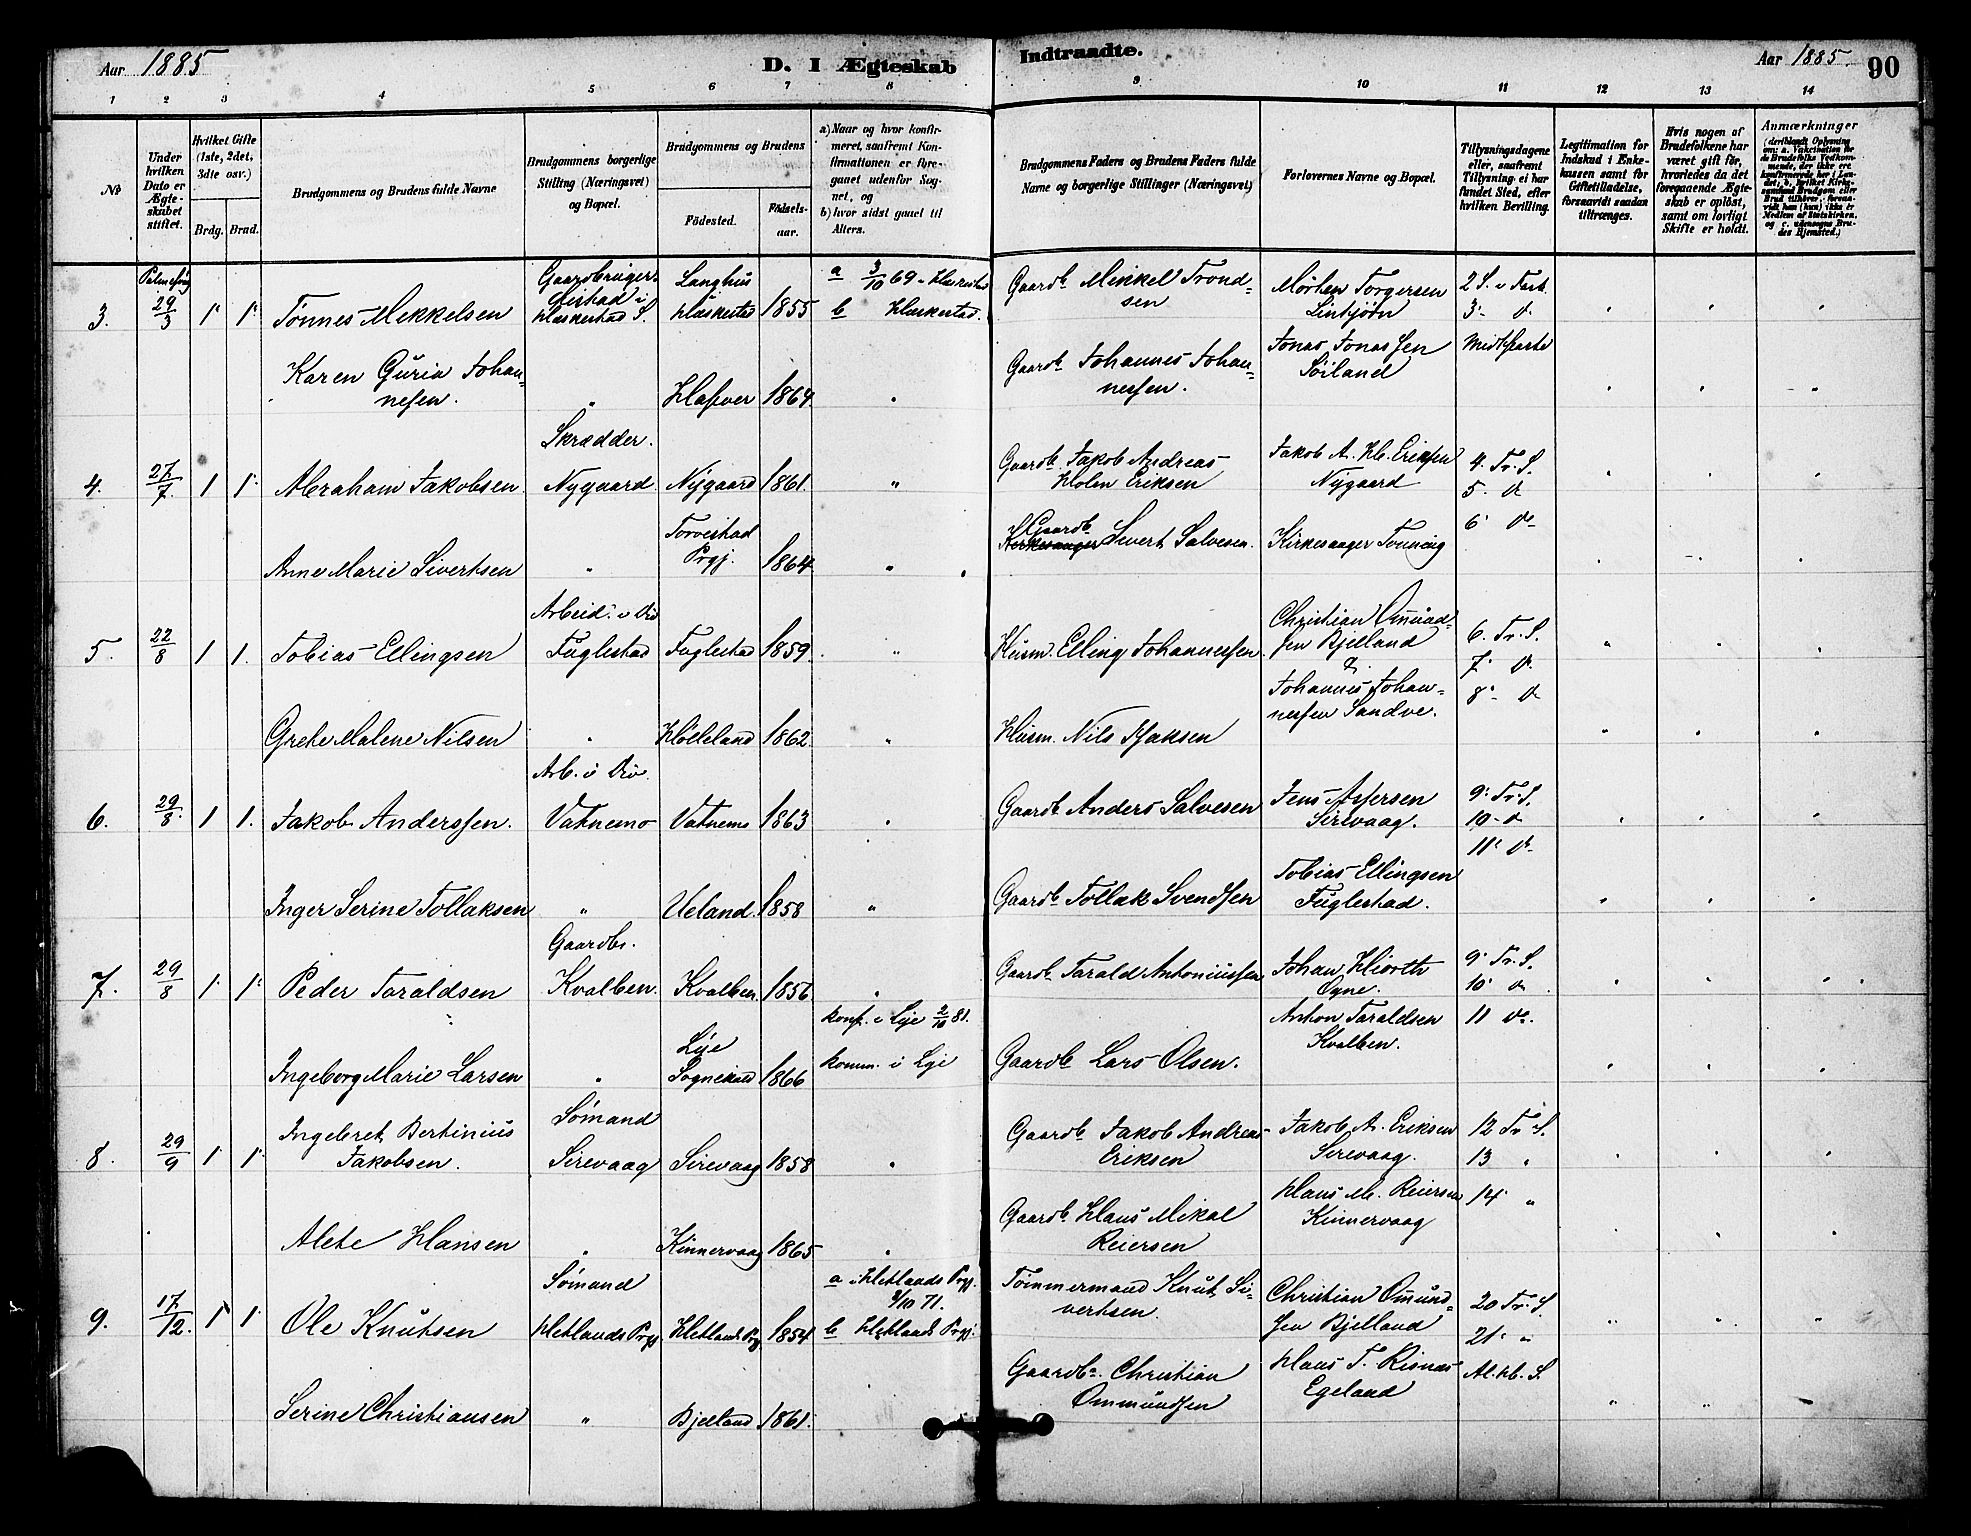 Aar 1885
D. I Ægteskab
Indtraadte.
Aar 1885.
90
1 2 3 4 5 6 7 8 9 10 11 12 13 14
No
Under hvilken Dato er Ægteskabet stiftet.
Hvilket Gifte (1ste, 2det, 3die osv.)
Brdg. Brud.
Brudgommens og Brudens fulde Navne
Brudgommens borgerlige Stilling (Næringsvei) og Bopæl.
Brudgommens og Brudens
Födested.
Födselsaar.
a) Naar og hvor konfirmeret, saafremt Konfirmationen er foreganet udenfor Sognet, og
b) hvor sidst gaaet til Alters.
Brudgommens Faders og Brudens Faders fulde Navne og borgerlige Stillinger (Næringsvei)
Forlovernes Navne og Bopæl.
Tillysningsdagene eller, saafremt Tillysning ei har fundet Sted, efter hvilken Bevilling.
Legitimation for Indskud i Enkekassen samt for Giftetilladelse, forsaavidt saadan tiltrænges.
Hvis nogen af Brudefolkene har været gift før, hvorledes da det foregaaende Ægteskab er oplöst, samt om lovligt Skifte er holdt.
Anmærkninger
3. 29/3 1 1 Tönnes Mekkelsen
Haskestad S. Langhus Haskestad 1855
a 3/10 69 i Haskestad
b Haskestad.
Gaardb. Mikkel Trondsen
Morten Torgersen Lintjörn
2 S. i Fast.
3 d
Karen Guria Johannesen. " 1864 "
Gaardb. Johannes Johannessen.
Jonas Jonassen Söiland
Midtfaste
Skrædder.
4. 27/7 1 1 Abraham Jakobsen Nygaard Nygaard 1861 "
Gaardb. Jakob Andreas Holm Eriksen
Jakob A. H. Eriksen Nygaard
4. Tr. S.
5. d
6. d
Anne Marie Sivertsen " Torvestad Prgj. 1864 "
Gaardb. Sivert Salvesen.
Kirkesanger Tonning
Arbeid. i
5. 22/8 1 1. Tobias Ellingsen Fuglestad Fuglestad 1859 "
Husm. Elling Johannessen
Christian Omundsen Bjelland
&
Johannes Johannessen Sandve.
6. Tr. S.
7. d
8. d
Grete Malene Nilsen " Hölleland 1862 "
Husm. Nils Isaksen
Arb. i
6. 29/8 1 1. Jakob Anderssen. Vatnemo Vatnemo 1863 "
Gaardb. Anders Salvesen
Jens Assersen Sirevaag.
9. Tr. S.
10. d
11. d
Inger Serine Tollaksen " Ueland 1858 "
Gaardb. Tollak Svendsen
Tobias Ellingsen Fuglestad.
Gaardbr.
7. 29/8 1 1. Peder Taraldsen Kvalben. Kvalben 1856 "
Gaardb. Tarald Antoniussen
Johan Hiorth Ogne.
Anton Taraldsen Kvalben.
9. Tr. S.
10. d
11 d.
Ingeborg Marie Larsen " Lye Sognekald 1866
konf. i Lye 2/10 81.
komm. i Lye
Gaardb. Lars Olsen.
Sömand
8. 29/9 1 1 Ingebret Bertinius Jakobsen. Sirevaag Sirevaag 1858 "
Gaardb. Jakob Andreas Eriksen
Jakob A. Eriksen Sirevaag.
12 Tr. S.
13 "
14 "
Alete Hansen " Kinnervaag 1865 "
Gaardb. Hans Mikal Reiersen
Hans M. Reiersen Kinnervaag
Sömand
9. 17/12. 1 1 Ole Knutsen Hetlands Prgj Hetlands Prgj 1854
a i Hetlands Prgj. /10 71.
b Hetlands Prgj.
Tömmermand Knut Sivertsen.
Christian Omundsen Bjelland
20 Tr. S.
21 "
Serine Christiansen " Bjelland 1861.
Gaardb. Christian Ommundsen
Hans T. Risnes Egeland
Al. H. S.